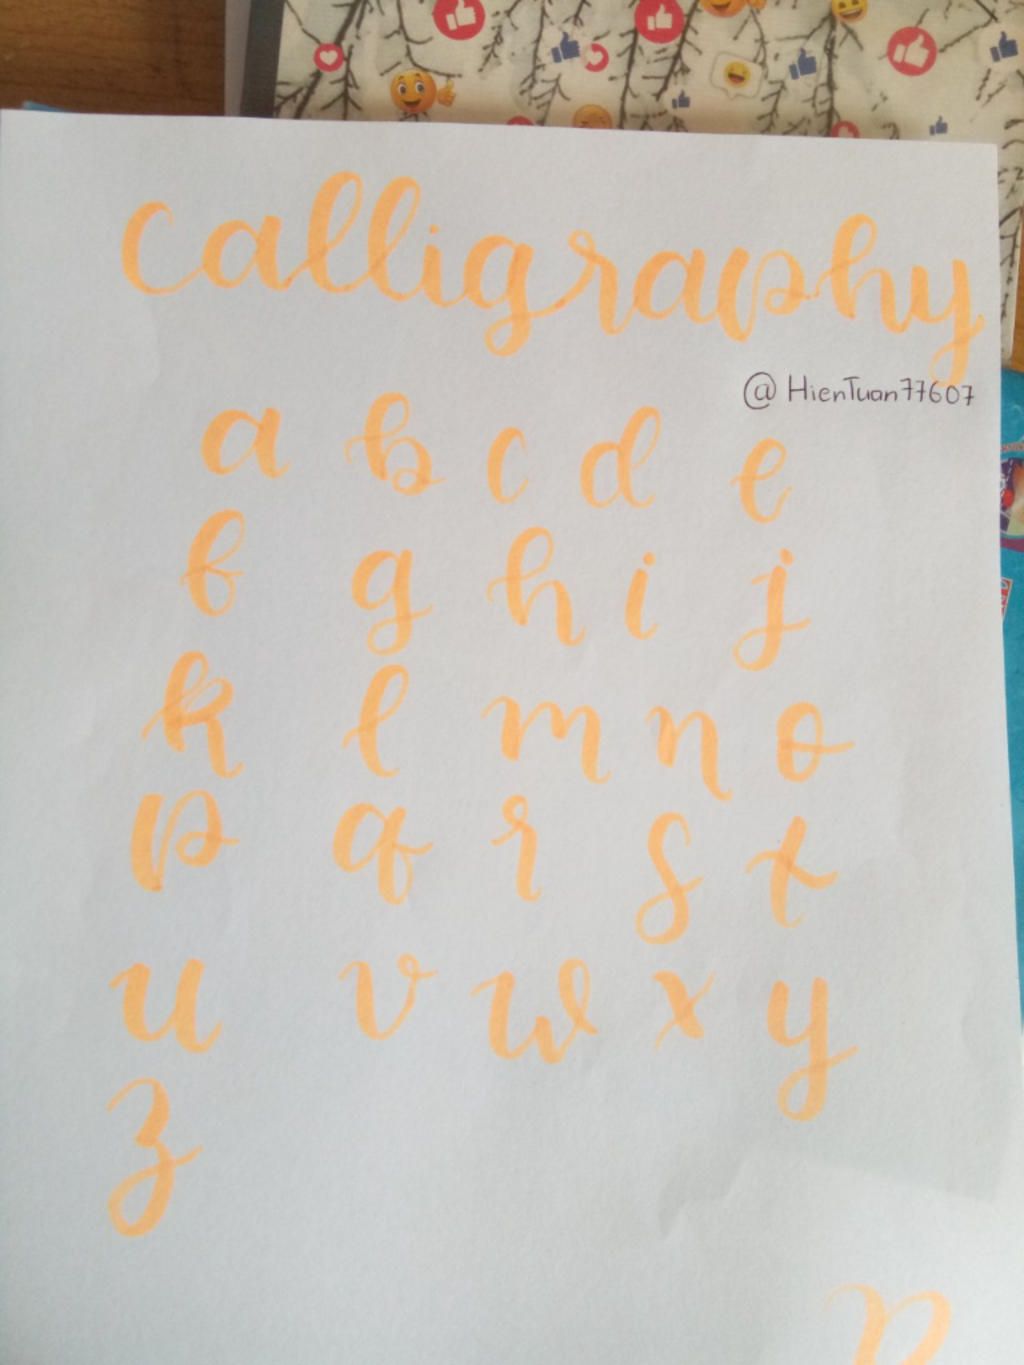 calligraphy
@HienTuan77607
a b c d e
f g h i j
k l m n o
p q r s t
u v w x y
z